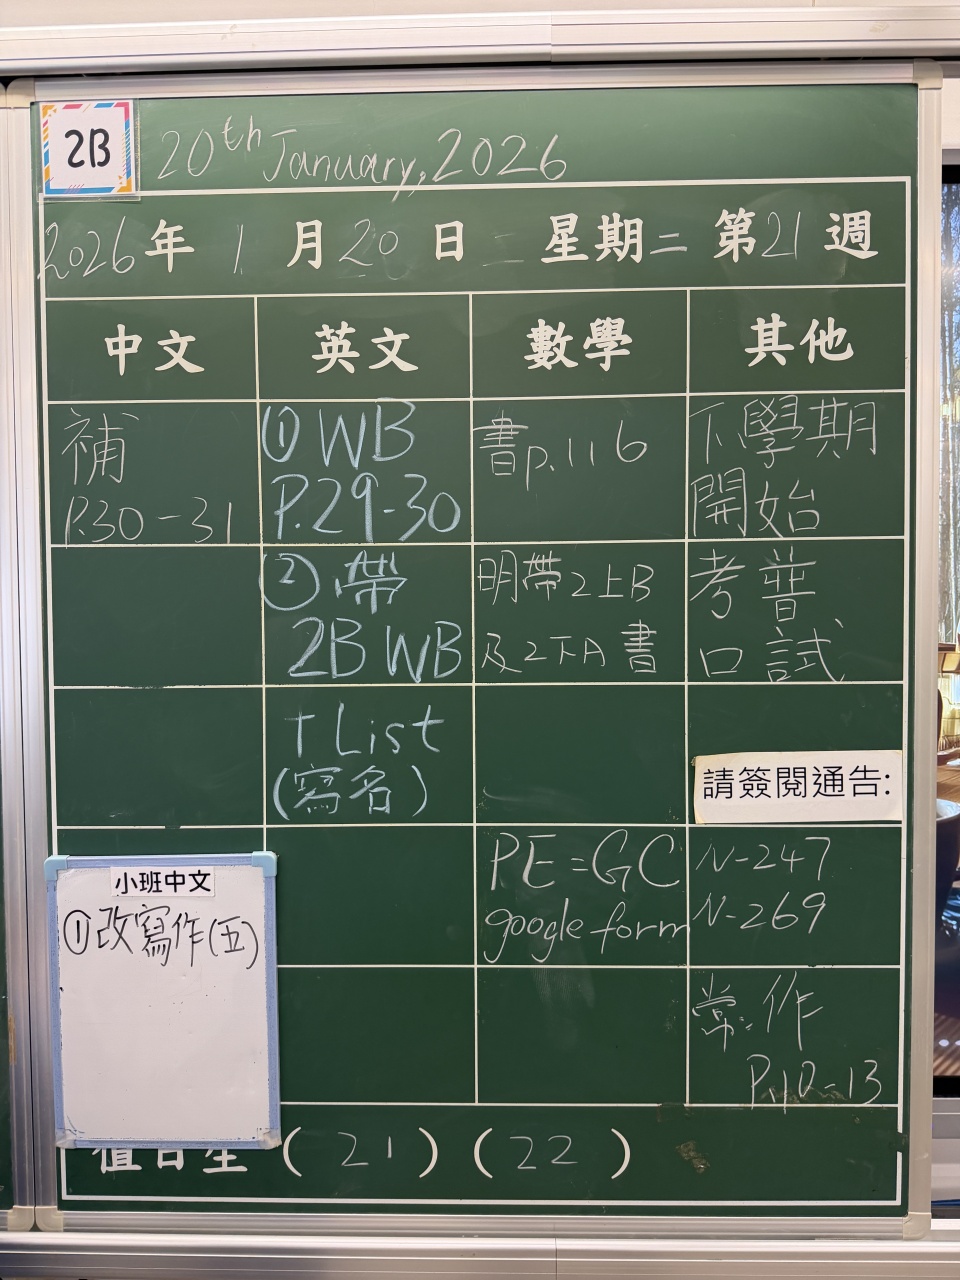 2B
20th January, 2026
2026年 1 月 20 日 星期二 第21週
中文 英文 數學 其他
補
P.30-31
① WB
P.29-30
② 帶
2B WB
T List
(寫名)
書p.116
明帶2上B
及2下A書
PE=GC
google form
下學期
開始
考普
口試
請簽閱通告:
N-247
N-269
常:作
P.10-13
小班中文
①改寫作(五)
值日生 (21)(22)